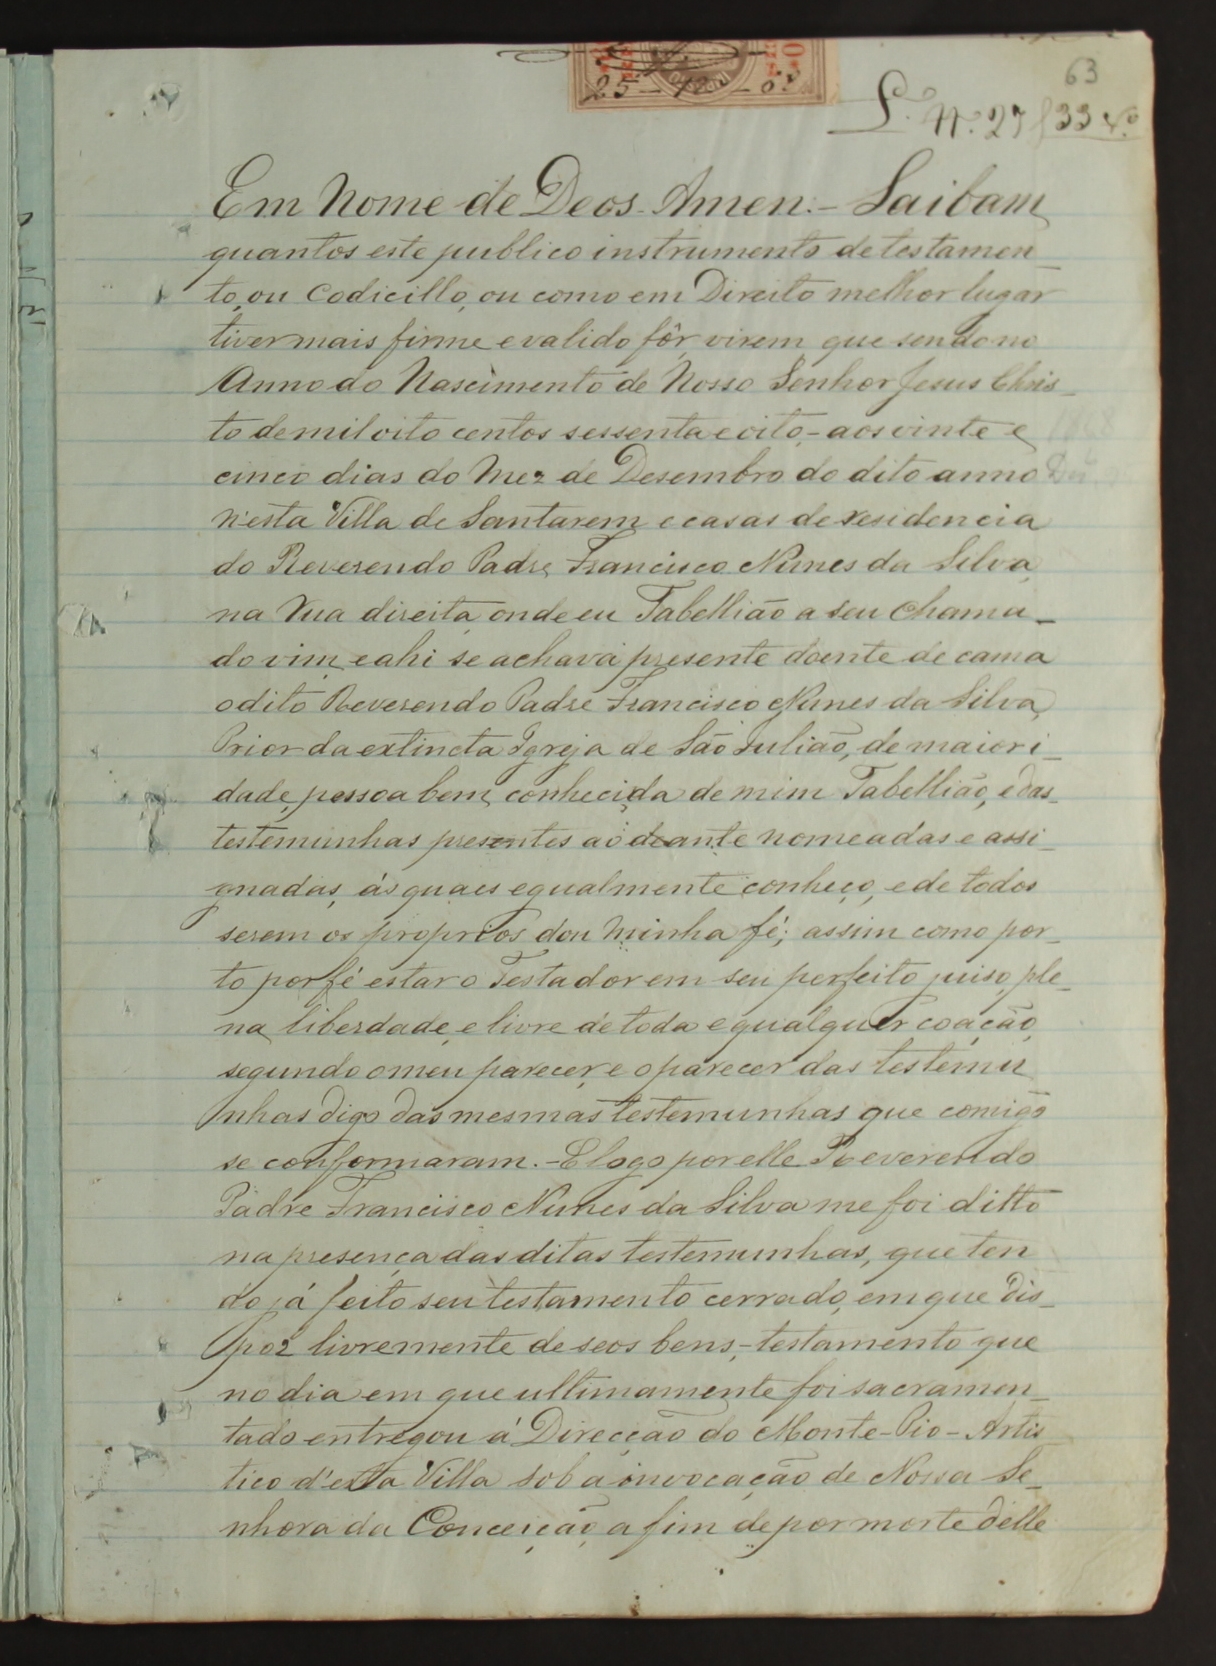 63
25-12-68
L. Nº 27 f 33 vº
Em Nome de Deos. Amen. - Saibam
quantos este publico instrumento de testamen
to, ou Codicillo, ou como em Direito melhor lugar
tiver mais firme e valido fôr, virem, que sendo no
Anno do Nascimento de Nosso Senhor Jesus Chris_
to de mil oito centos sessenta e oito, - aos vinte e
cinco dias do Mez de Desembro do dito anno
n'esta Villa de Santarem e casas de residencia
do Reverendo Padre Francisco Nunes da Silva
na Rua direita, onde eu Tabellião a seu chama_
do vim, e ahi se achava presente doente de cama
o dito Reverendo Padre Francisco Nunes da Silva,
Prior da extincta Igreja de São Julião, de maiori_
dade, pessoa bem conhecida de mim Tabellião, e das_
testemunhas presentes ao deante nomeadas e assi_
gnadas, ás quaes egualmente conheço, e de todos
serem os proprios dou minha fé; assim como por_
to por fé estar o Testador em seu perfeito juiso, ple_
na liberdade, e livre de toda e qualquer coacção,
segundo o meu parecer, e o parecer das testemu
nhas digo das mesmas testemunhas que comigo
se conformaram. - E logo por elle Reverendo
Padre Francisco Nunes da Silva me foi ditto
na presença das ditas testemunhas, que ten
do já feito seu testamento cerrado, em que dis_
poz livremente de seos bens, - testamento que
no dia em que ultimamente foi sacramen_
tado entregou á Direcção do Monte-Pio-Artis
tico d'esta Villa sob a invocação de Nossa Se_
nhora da Conceição, a fim de por morte d'elle